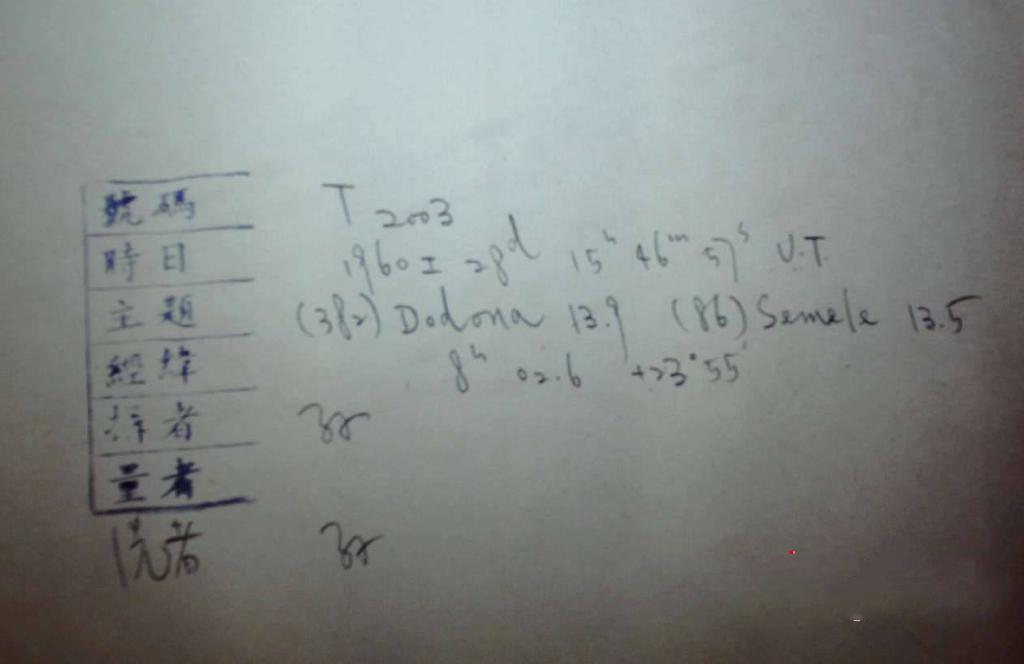 號碼 T 2003
時日 1960 I 28d 15h 46m 57s U.T.
主題 (382) Dodona 13.9 (86) Semele 13.5
經緯 8h 02.6 +23°55'
者
量者
者